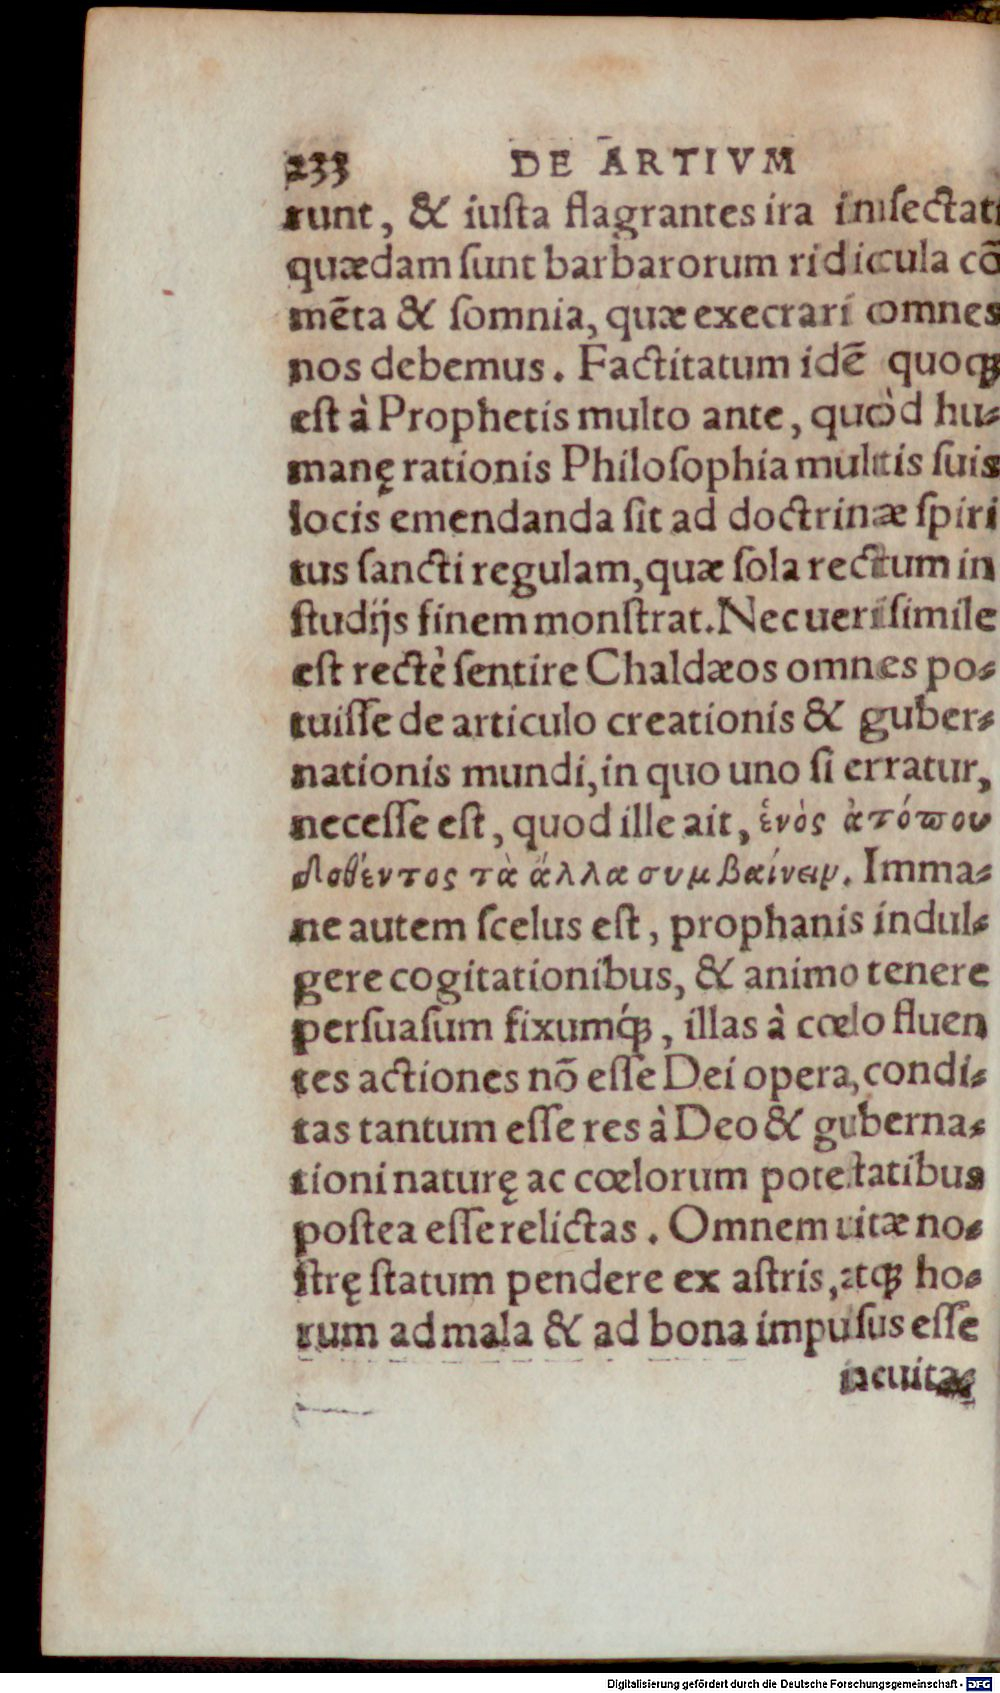 233 DE ARTIVM
runt, & iusta flagrantes ira insectati
quædam sunt barbarorum ridicula cõ
mẽta & somnia, quæ execrari omnes
nos debemus. Factitatum idẽ quoqꝫ
est à Prophetis multo ante, quòd hu⸗
manę rationis Philosophia multis suis
locis emendanda sit ad doctrinæ spiri
tus sancti regulam, quæ sola rectum in
studijs finem monstrat. Nec uerisimile
est rectè sentire Chaldæos omnes po⸗
tuisse de articulo creationis & guber⸗
nationis mundi, in quo uno si erratur,
necesse est, quod ille ait, ἑνὸς ἀτόπου
δοθέντος τὰ ἄλλα συμβαίνειν. Imma⸗
ne autem scelus est, prophanis indul⸗
gere cogitationibus, & animo tenere
persuasum fixumq́ꝫ, illas à cœlo fluen
tes actiones nõ esse Dei opera, condi⸗
tas tantum esse res à Deo & guberna⸗
tioni naturę ac cœlorum potestatibus
postea esse relictas. Omnem uitæ no⸗
strę statum pendere ex astris, atqꝫ ho⸗
rum ad mala & ad bona impulsus esse
ineuita⸗
Digitalisierung gefördert durch die Deutsche Forschungsgemeinschaft - DFG